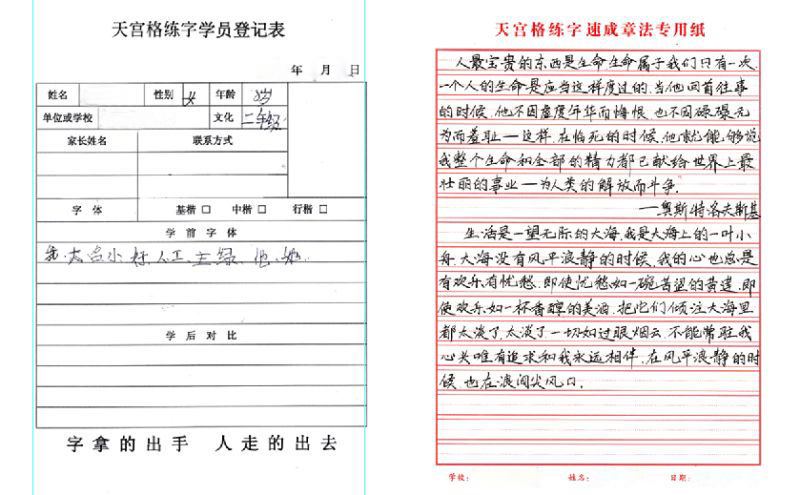 天宫格练字学员登记表
年 月 日
姓名 性别 女 年龄 岁
单位或学校 文化 二年级
家长姓名 联系方式
字体 基楷 □ 中楷 □ 行楷 □
学前字体
大 小 人工 主 绿 她
学后对比
字拿的出手 人走的出去
天宫格练字速成章法专用纸
人最宝贵的东西是生命生命属于我们只有一次.
一个人的生命是应当这样度过的.当他回首往事
的时候.他不因虚度年华而悔恨.也不因碌碌无
为而羞耻—这样.在临死的时候.他就能够说
我整个生命和全部的精力都已献给世界上最
壮丽的事业—为人类的解放而斗争.
——奥斯特洛夫斯基
生活是一望无际的大海.我是大海上的一叶小
舟.大海没有风平浪静的时候.我的心也总是
有欢乐.有忧愁.即使忧愁.如一碗苦涩的黄莲.即
使欢乐.如一杯香醇的美酒.把它们倾注大海里
都太淡了.太淡了一切如过眼烟云.不能常驻我
心头唯有追求和我永远相伴.在风平浪静的时
候 也在浪间尖风口.
学校： 姓名： 日期：